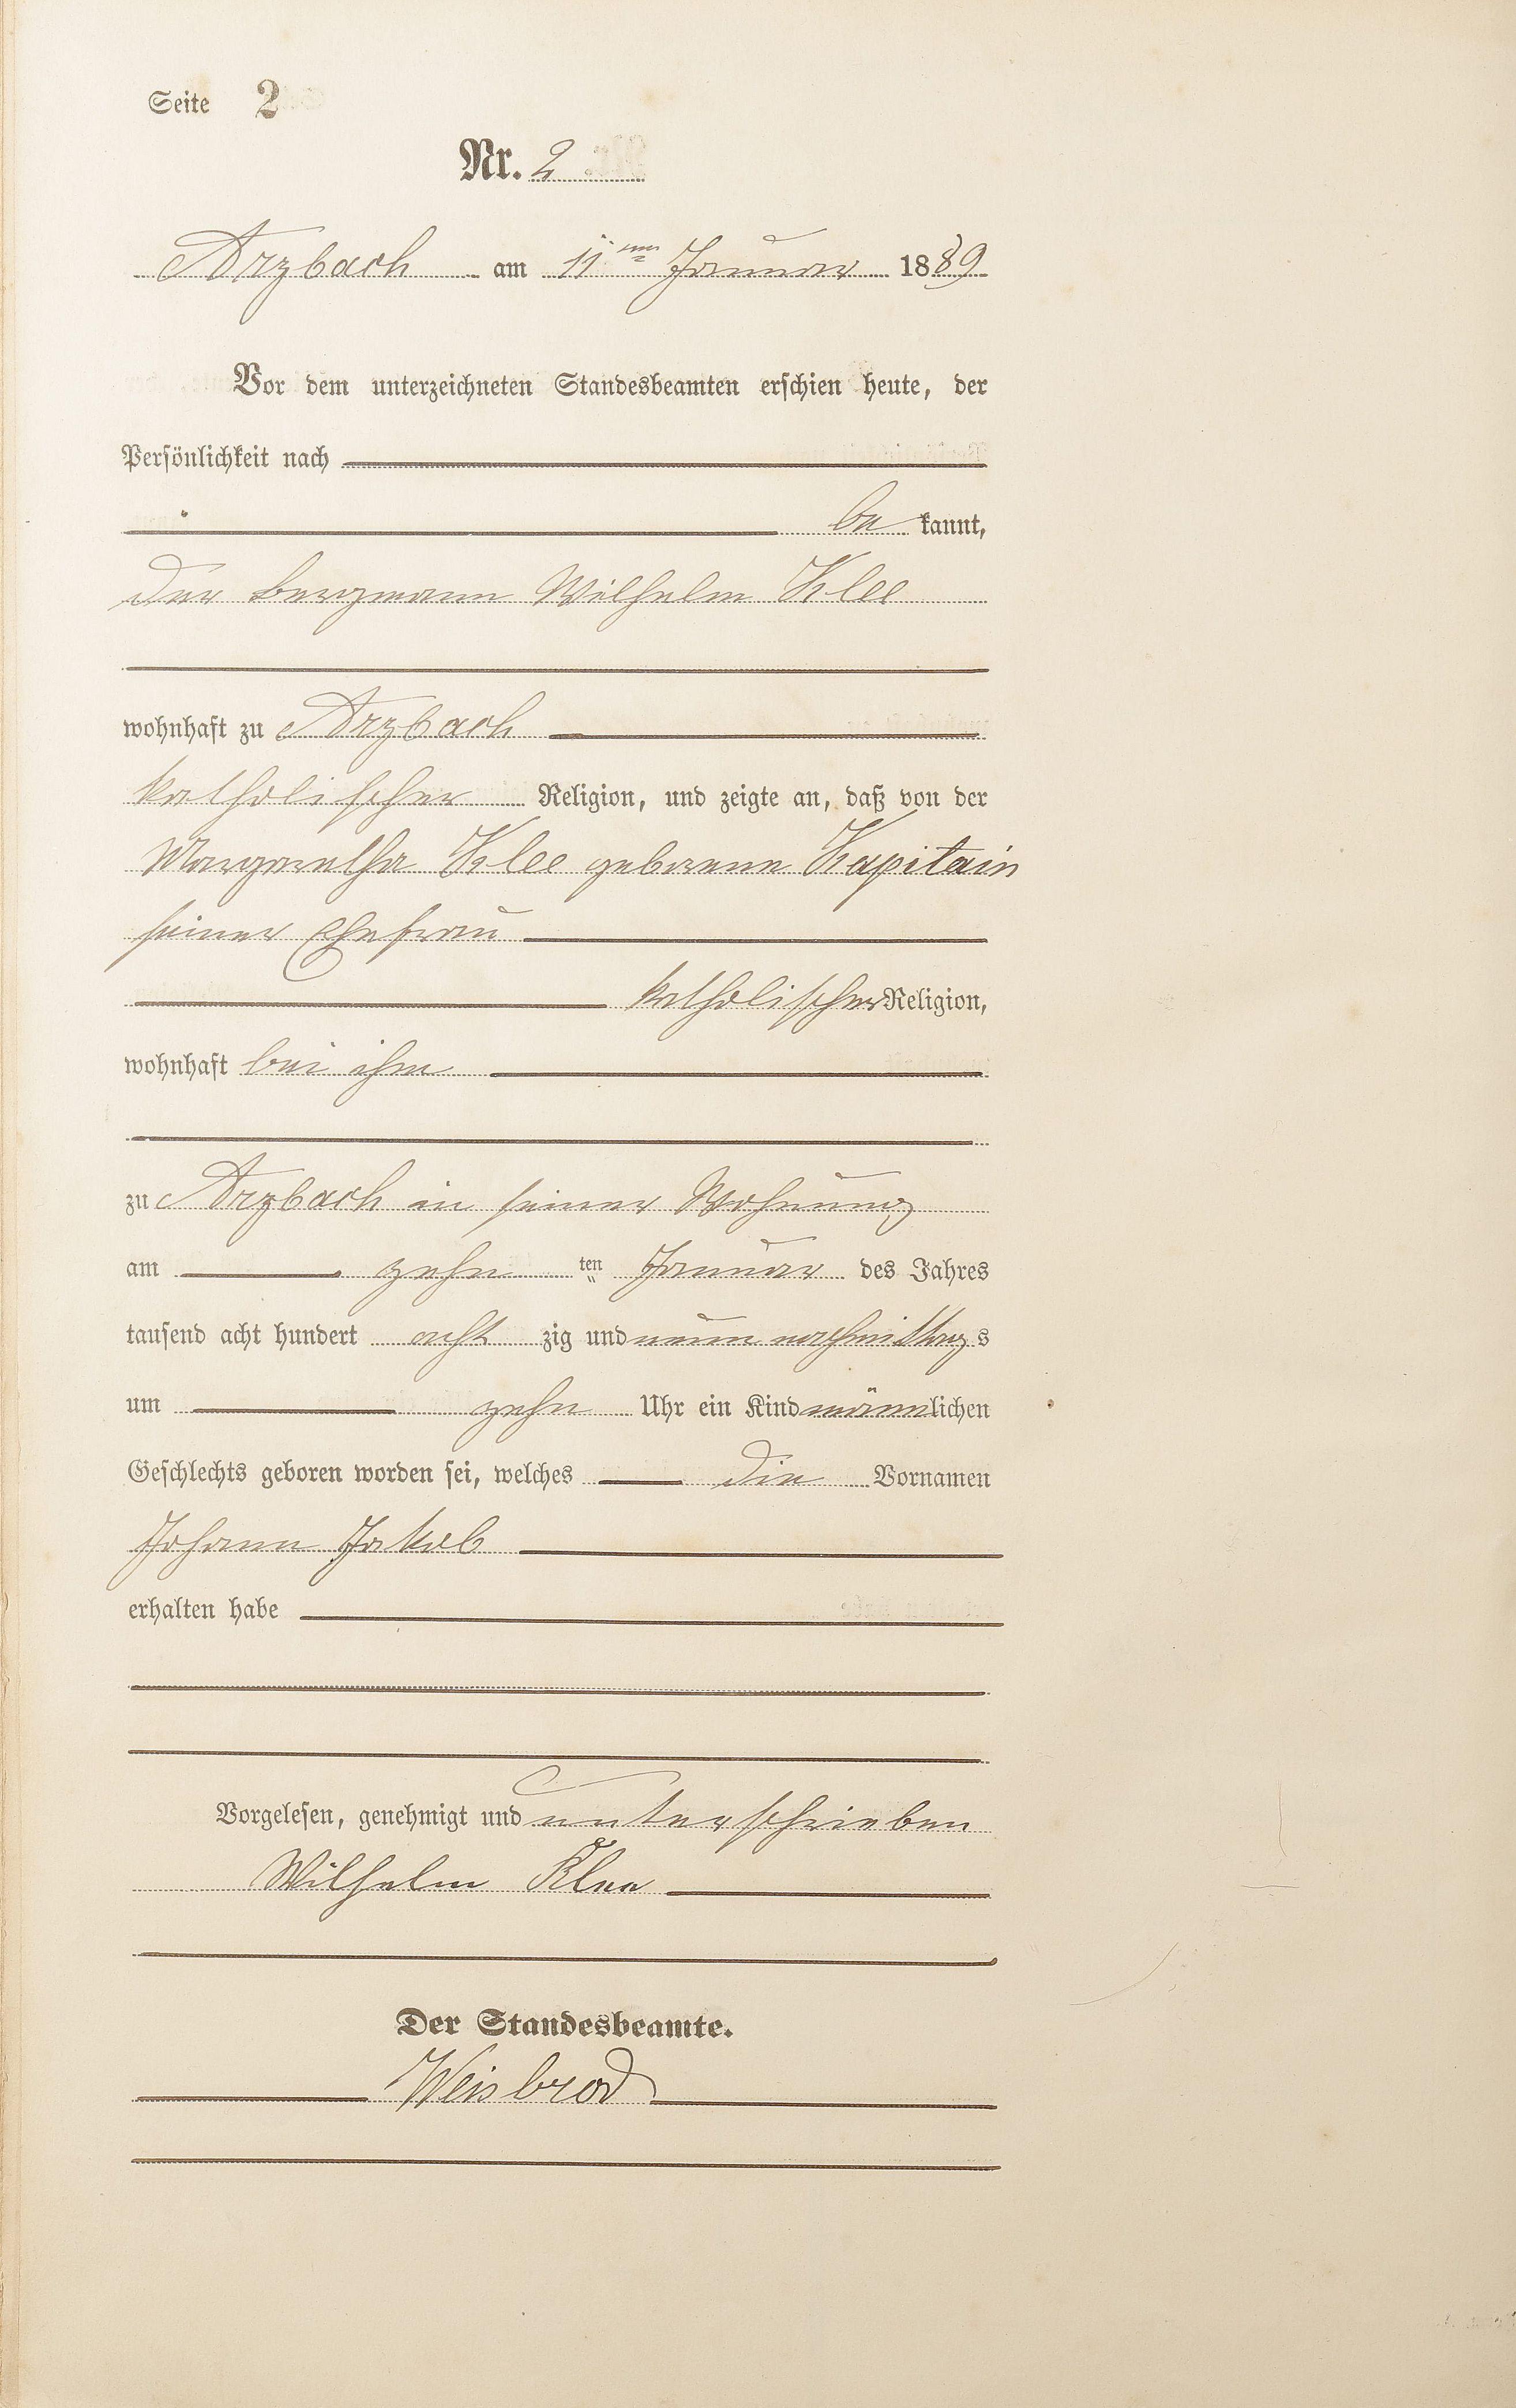 Seite 2
Nr. 2
Arzbach am 11ten Januar 1889
Vor dem unterzeichneten Standesbeamten erschien heute, der
Persönlichkeit nach
be kannt,
der Bergmann Wilhelm Klee
wohnhaft zu Arzbach
katholischer Religion, und zeigte an, daß von der
Margaretha Klee geborene Kapitain
seiner Ehefrau
katholischer Religion,
wohnhaft bei ihm
zu Arzbach in seiner Wohnung
am zehn ten Januar des Jahres
tausend acht hundert acht zig und neun nachmittags
um zehn Uhr ein Kind männlichen
Geschlechts geboren worden sei, welches die Vornamen
Johann Jakob
erhalten habe
Vorgelesen, genehmigt und unterschrieben
Wilhelm Klee
Der Standesbeamte.
Weisbrod